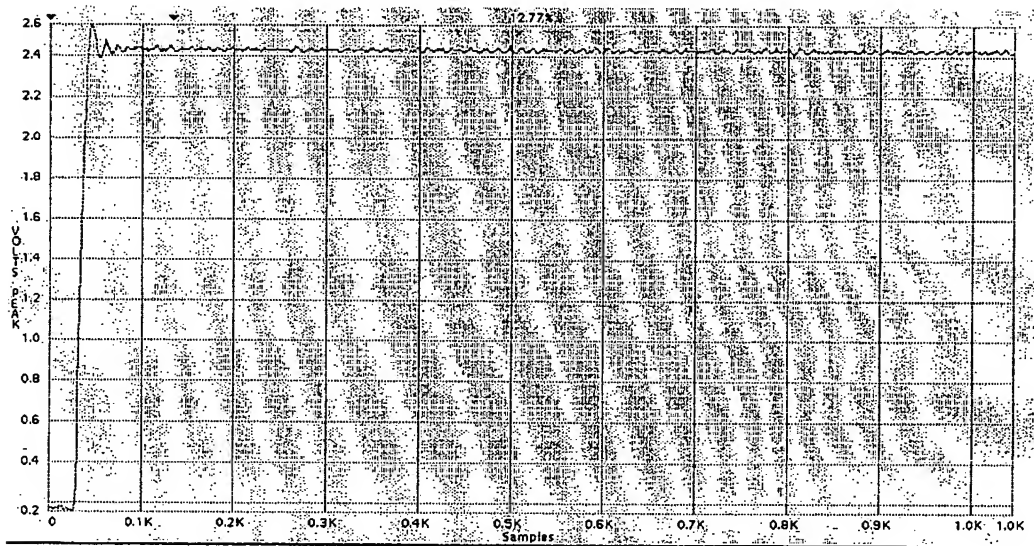 12.77%
2.6
2.4
2.2
2.0
1.8
1.6
1.4
1.2
1.0
0.8
0.6
0.4
0.2
VOLTS PEAK
0 0.1K 0.2K 0.3K 0.4K 0.5K 0.6K 0.7K 0.8K 0.9K 1.0K 1.0K
Samples